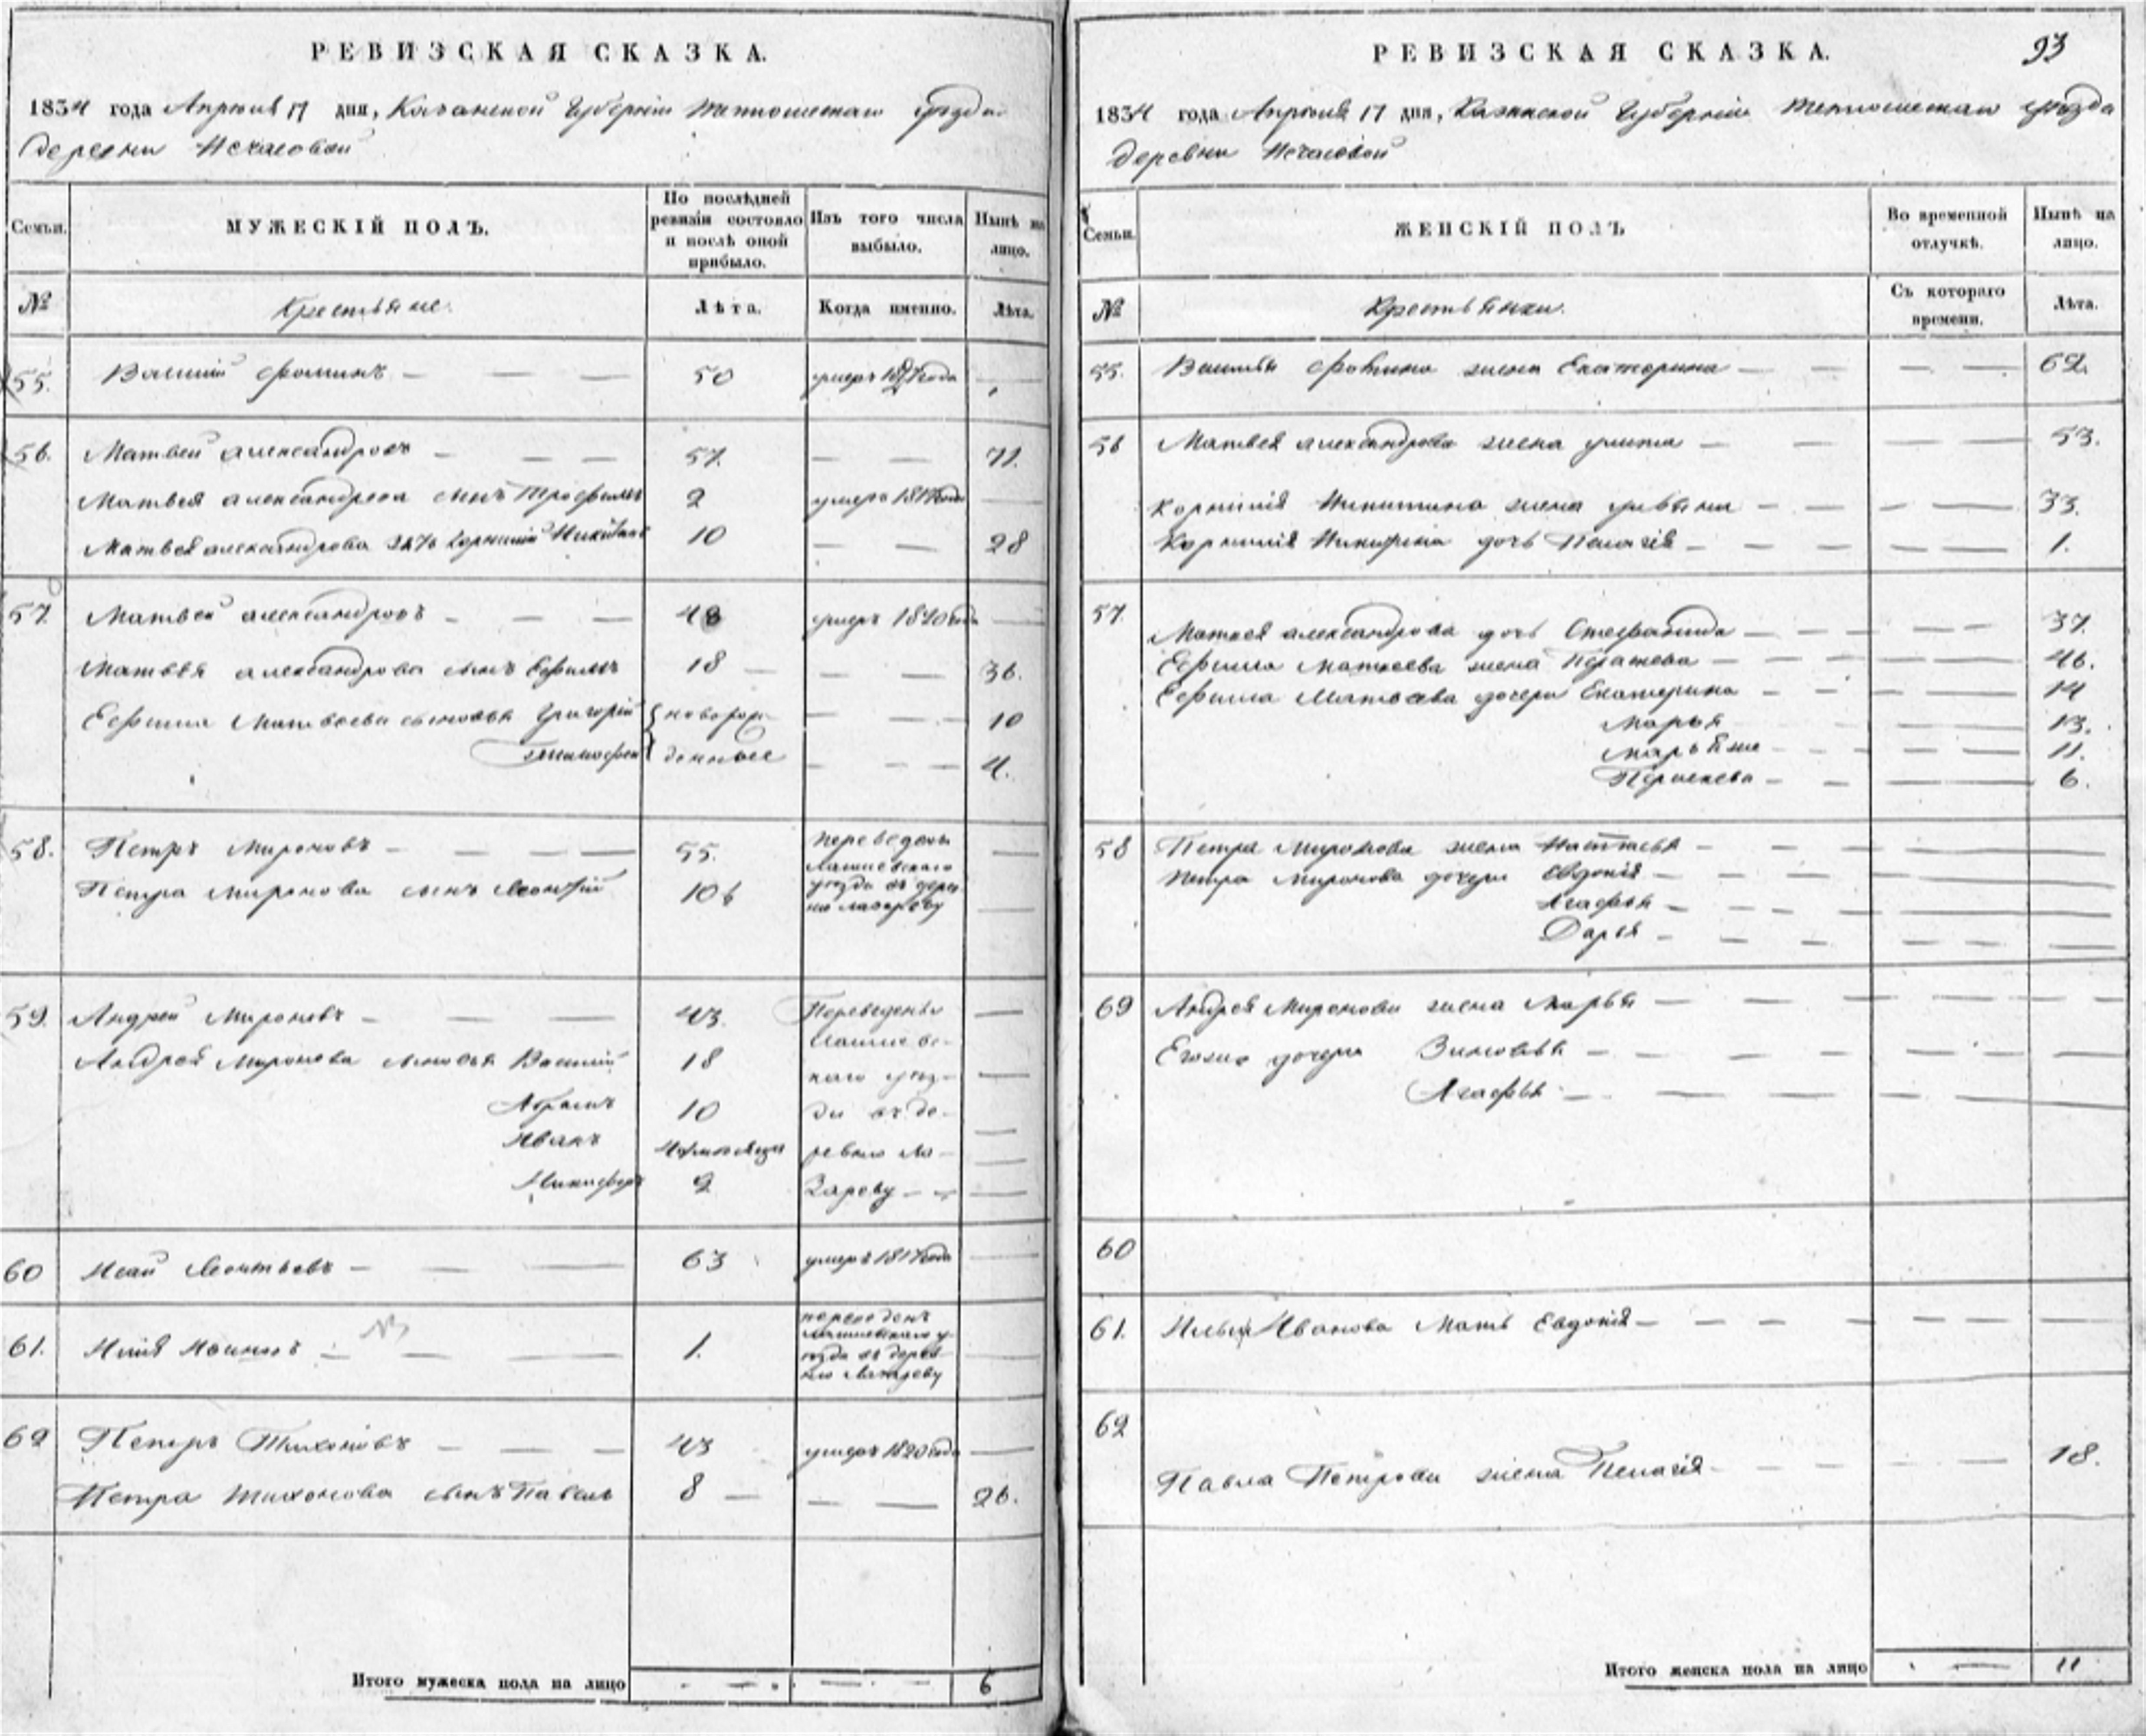 РЕВИЗСКАЯ СКАЗКА.
1834 года Апреля 17 дня, Казанской Губернiи Тетюшскаго уезда
деревни Нечасовой
Семьи. МУЖЕСКІЙ ПОЛЪ. По послѣдней ревизіи состояло и послѣ оной прибыло. Изъ того числа выбыло. Нынѣ на лицо.
№ Крестьяне. Лѣта. Когда именно. Лѣта.
55. Василий Фоминъ — — — 50 умеръ года —
56. Матвей александровъ — — — 57. — — 71.
Матвея александрова сынъ Трофимъ 2 умеръ 1817 года —
Матвея александрова зять Корнилий Никитинъ 10 — — 28
57 Матвей александровъ — — — 48 умеръ года —
Матвея александрова сынъ Ефимъ 18 — — — 36.
Ефима Матвеева сыновья Григорий новорож- — — 10
Тимофей денные — — — 4.
58. Петръ Мироновъ — — — — 55. переведены —
Петра Миронова сынъ Леонтий 10 Лаишевскаго уезда въ дерев ню Лазареву —
59. Андрей Мироновъ — — — 43. Переведены —
Андрея Миронова сыновья Василий 18 Лаишевс- каго уез- —
Абрамъ 10 да въ де- —
Иванъ ревню Ла- —
Никифоръ 2 зареву — — —
60 Исай Леонтьевъ — — — 63 умеръ 1817 года —
61. Илья — — — 1. переведенъ Лаишевскаго у- езда въ дерев- ню Лазареву —
62 Петръ Тихоновъ — — — 43 умеръ 1820 года —
Петра Тихонова сынъ Павелъ 8 — — — 26.
Итого мужеска пола на лицо — — 6
РЕВИЗСКАЯ СКАЗКА. 93
1834 года Апреля 17 дня, Казанской Губернiи Тетюшскаго уезда
деревни Нечасовой
Семьи. ЖЕНСКІЙ ПОЛЪ Во временной отлучкѣ. Нынѣ на лицо.
№ Крестьянки. Съ котораго времени. Лѣта.
55. Василья Фомина жена Екатерина — — — — 62.
56 Матвея александрова жена улита — — — — 53.
Корнилия Никитина жена ульяна — — — — — 33.
Корнилия Никитина дочь Пелагiя — — — — — 1.
57. Матвея александрова дочь Стефанида — — — — 37.
Ефима Матвеева жена — — — — — 46.
Ефима Матвеева дочери Екатерина — — — — 14
Марья — — 13.
Марьяна — — — — 11.
— — — — 6.
58 Петра Миронова жена Наталья — — — — — —
Петра Миронова дочери Евдокiя — — — — — —
Агафья — — — — — —
Дарья — — — — — — —
69 Андрея Миронова жена Марья — — — — — — —
Егожъ дочери Зиновья — — — — — — —
Агафья — — — — — — —
60
61. Ильи Иванова Мать Евдокiя — — — — — — —
62
Павла Петрова жена Пелагiя — — — — — 18.
Итого женска пола на лицо — 11